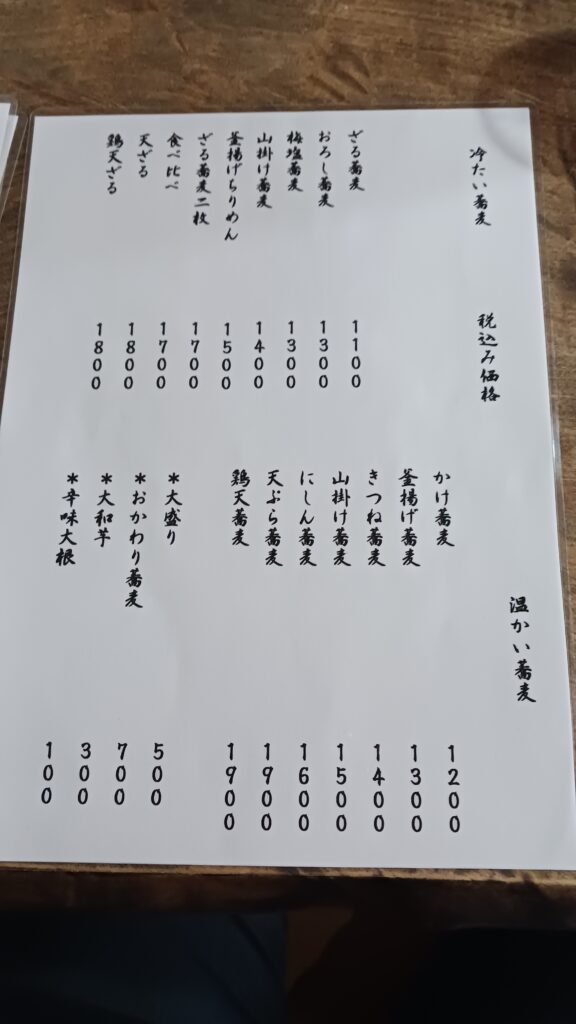 冷たい蕎麦　税込み価格
ざる蕎麦　1100
おろし蕎麦　1300
梅塩蕎麦　1300
山掛け蕎麦　1400
釜揚げちりめん　1500
ざる蕎麦二枚　1700
食べ比べ　1700
天ざる　1800
鶏天ざる　1800
温かい蕎麦
かけ蕎麦　1200
釜揚げ蕎麦　1300
きつね蕎麦　1400
山掛け蕎麦　1500
にしん蕎麦　1600
天ぷら蕎麦　1900
鶏天蕎麦　1900
*大盛り　500
*おかわり蕎麦　700
*大和芋　300
*辛味大根　100